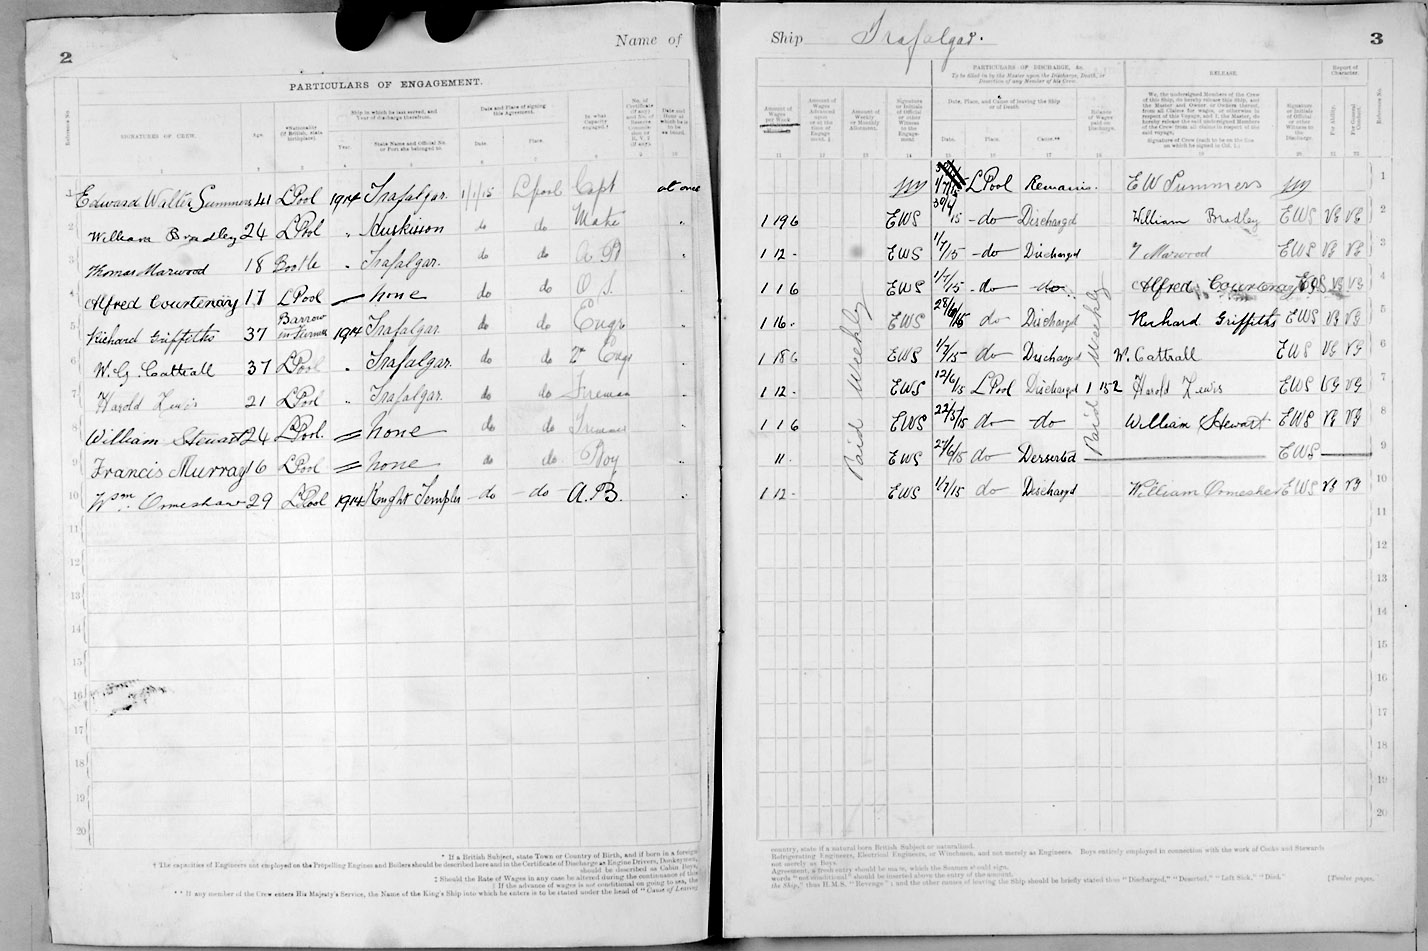 2
Name of
PARTICULARS OF ENGAGEMENT.
Reference No.
SIGNATURES OF CREW.
Age.
*Nationality (if British, state birthplace).
Ship in which he last served, and Year of discharge therefrom.
Year.
State Name and Official No. or Port she belonged to.
Date and Place of signing this Agreement.
Date.
Place.
In what Capacity engaged.†
1 Edward Walter Summers 41 L'Pool 1914 Trafalgar. 1/1/15 L'pool Capt at once
2 William Bradley 24 L'Pool " Huskisson do do Mate "
3 Thomas Marwood 18 Bootle " Trafalgar. do do A B "
4 Alfred Courtenay 17 L'Pool — none do do O S. "
5 Richard Griffiths 37 Barrow in Furness 1914 Trafalgar do do Engr "
6 W. G. Cattrall 37 L'Pool " Trafalgar. do do 2nd Engr "
7 Harold Lewis 21 L'Pool " Trafalgar do do Fireman "
8 William Stewart 24 L'Pool. = none do do "
9 Francis Murray 16 L'Pool = none do do Boy "
10 Wm. Ormeshaw 29 L'Pool 1914 Knight Templar - do - do - A.B. "
11
12
13
14
15
16
17
18
19
20
* If a British Subject, state Town or Country of Birth, and if born in a foreign
† The capacities of Engineers not employed on the Propelling Engines and Boilers should be described here and in the Certificate of Discharge as Engine Drivers, Donkeymen,
should be described as Cabin Boys,
‡ Should the Rate of Wages in any case be altered during the continuance of this
If the advance of wages is not conditional on going to sea, the
** If any member of the Crew enters His Majesty's Service, the Name of the King's Ship into which he enters is to be stated under the head of "Cause of Leaving
Ship Trafalgar.
3
PARTICULARS OF DISCHARGE, &c.
To be filled in by the Master upon the Discharge, Death, or Desertion of any Member of his Crew.
RELEASE.
Report of Character.
Amount of Wages per Week
Amount of Wages Advanced upon or at the time of Engagement.‡
Amount of Weekly or Monthly Allotment.
Signature or Initials of Official or other Witness to the Engagement
Date, Place, and Cause of leaving the Ship or of Death.
Date.
Place.
Cause.**
Balance of Wages paid on Discharge.
We, the undersigned Members of the Crew of this Ship, do hereby release this Ship, and the Master and Owner or Owners thereof, from all Claims for wages, or otherwise in respect of this Voyage, and I, the Master, do hereby release the said undersigned Members of the Crew from all claims in respect of the said voyage.
Signature of Crew (each to be on the line on which he signed in Col. 1).
Signature or Initials of Official or other Witness to the Discharge.
For Ability.
For General Conduct.
Reference No.
1/7/15 L'Pool Remains. E W Summers 1
1 19 6 EWS 30/4/15 - do Discharged William Bradley EWS VG VG 2
1 12 - EWS 1/7/15 - do Discharged T Marwood EWS VG VG 3
1 1 6 EWS 1/7/15 - do - do Alfred Courtenay EWS VG VG 4
1 16 - EWS 28/6/15 do Discharged Richard Griffiths EWS VG VG 5
1 18 6 EWS 1/7/15 - do Discharged W. Cattrall EWS VG VG 6
1 12 - EWS 12/6/15 L Pool Discharged 1 15 2 Harold Lewis EWS VG VG 7
1 1 6 EWS 22/5/15 do do William Stewart EWS VG VG 8
11 - EWS 27/6/15 do Derserted EWS 9
1 12 - EWS 1/7/15 do Discharged William Ormesher EWS VG VG 10
Paid Weekly
Paid Weekly
11
12
13
14
15
16
17
18
19
20
country, state if a natural born British Subject or naturalised.
Refrigerating Engineers, Electrical Engineers, or Winchmen, and not merely as Engineers. Boys entirely employed in connection with the work of Cooks and Stewards
not merely as Boys.
Agreement, a fresh entry should be made, which the Seamen should sign.
words "not conditional" should be inserted above the entry of the amount.
the Ship," thus H.M.S. "Revenge"; and the other causes of leaving the Ship should be briefly stated thus "Discharged," "Deserted," "Left Sick," "Died."
[Twelve pages.